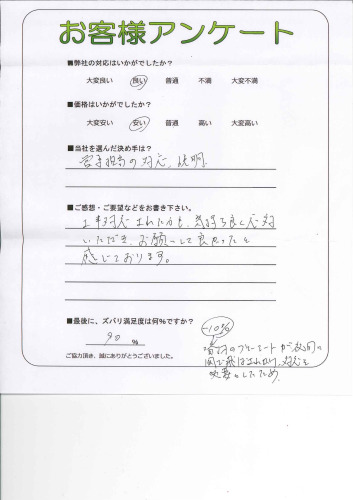 お客様アンケート
■弊社の対応はいかがでしたか？
大変良い 良い 普通 不満 大変不満
■価格はいかがでしたか？
大変安い 安い 普通 高い 大変高い
■当社を選んだ決め手は？
営業担当の対応、説明
■ご感想・ご要望などをお書き下さい。
工事対応された方も、気持ち良く応対
いただき、お願いして良かったと
感じております。
■最後に、ズバリ満足度は何％ですか？
-10%
90 %
ご協力頂き、誠にありがとうございました。